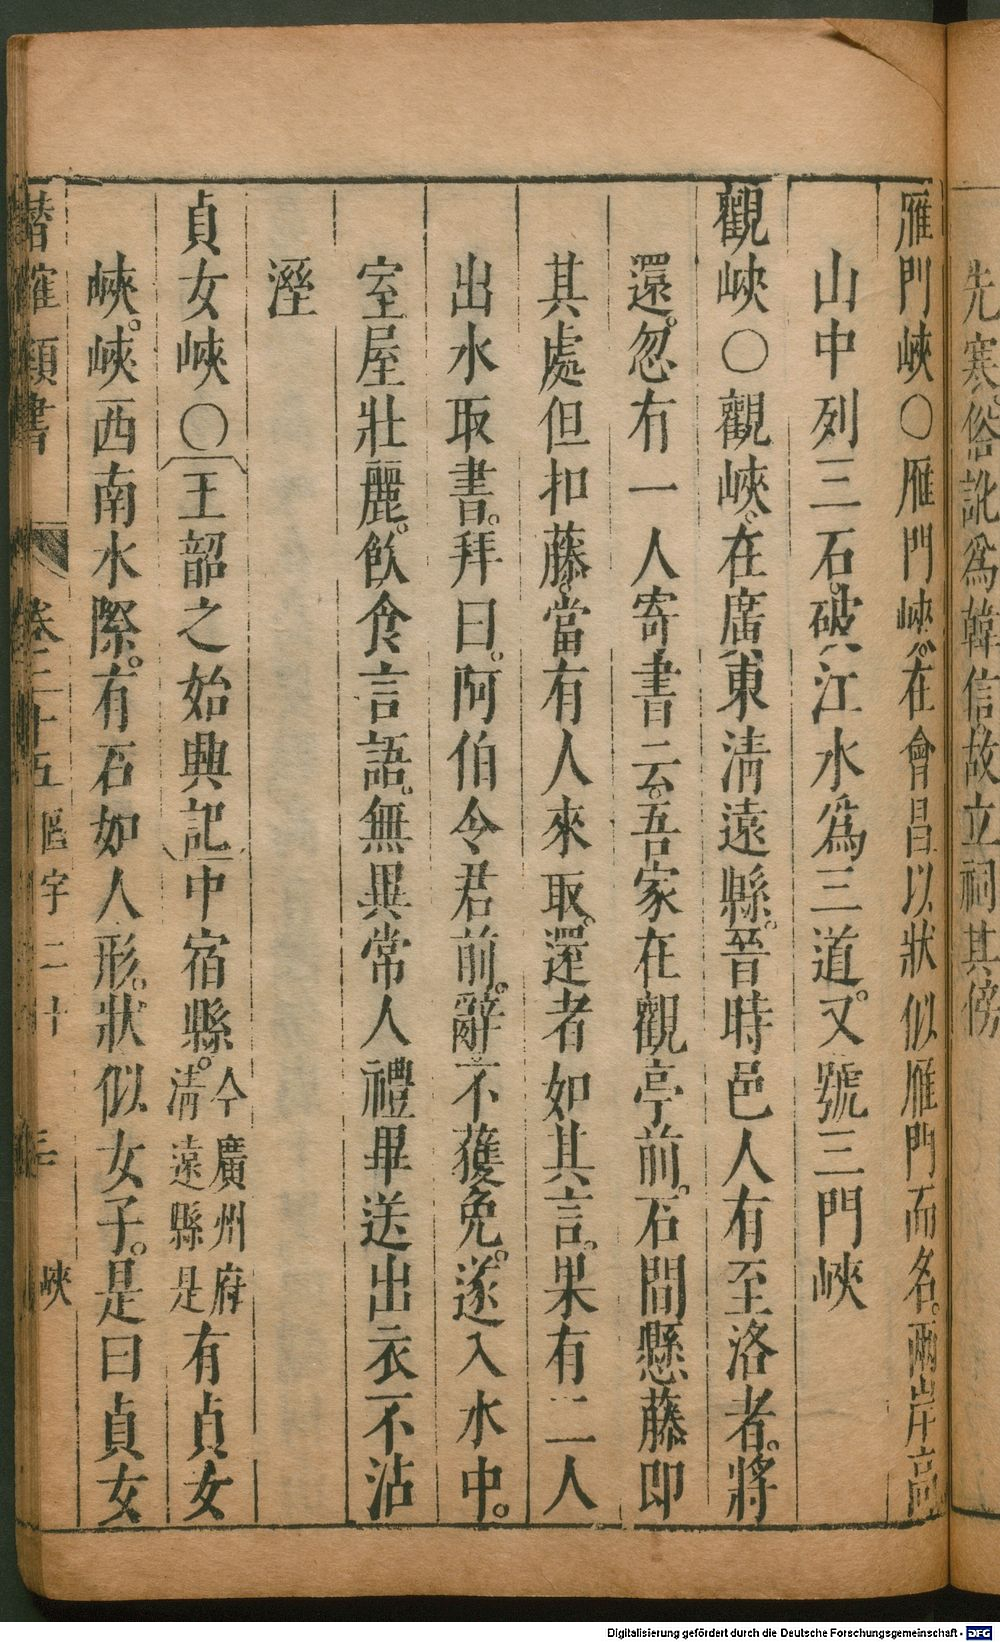 先寒。俗訛為韓信。故立祠其傍
雁門峽○雁門峽。在會昌以狀似雁門而名。兩岸高
山中列三石。破江水為三道。又號三門峽
觀峽○觀峽。在廣東清遠縣。晉時邑人有至洛者。將
還。忽有一人寄書云。吾家在觀亭前。石間懸藤即
其處但扣藤。當有人來取。還者如其言。果有二人
出水取書。拜曰。阿伯令君前。辭不獲免。遂入水中。
室屋壯麗。飲食言語。無異常人禮畢送出衣不沾
溼
貞女峽○王韶之始興記中宿縣。今廣州府清遠縣是有貞女
峽。峽西南水際。有石如人形。狀似女子。是曰貞女
潛確類書 卷二十五 區宇二十 峽
Digitalisierung gefördert durch die Deutsche Forschungsgemeinschaft - DFG